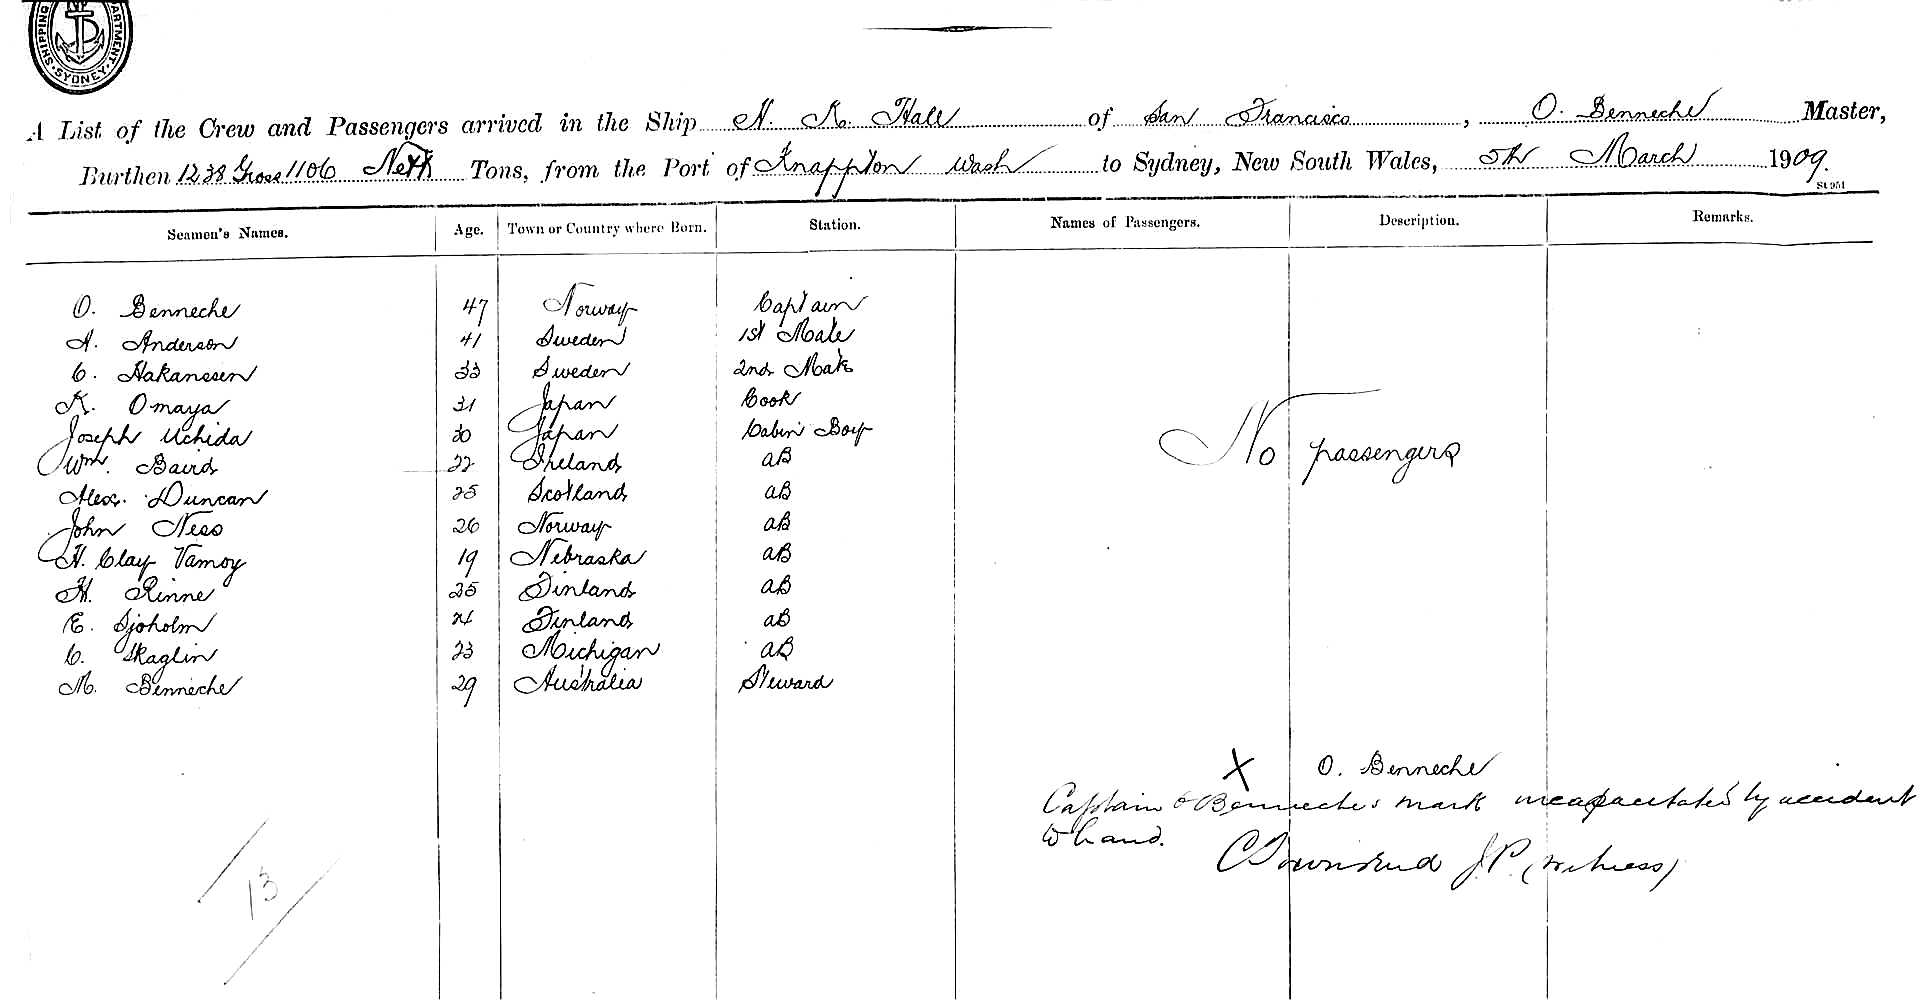 SHIPPING DEPARTMENT. SYDNEY.
A List of the Crew and Passengers arrived in the Ship H. K. Hall of San Francisco, O. Benneche Master,
Burthen 1238 Gross 1106 Nett Tons, from the Port of Knappton Wash to Sydney, New South Wales, 5th March 1909.
St 951
Seamen's Names. Age. Town or Country where Born. Station. Names of Passengers. Description. Remarks.
O. Benneche 47 Norway Captain
A. Anderson 41 Sweden 1st Mate
C. Hakanssen 33 Sweden 2nd Mate
K. Omaya 31 Japan Cook
Joseph Uchida 30 Japan Cabin Boy
Wm. Baird 22 Ireland aB
Alex. Duncan 25 Scotland aB
No passengers
John Ness 26 Norway aB
H. Clay Vamoy 19 Nebraska aB
H. Rinne 25 Finland aB
E. Sjoholm 24 Finland aB
C. Skaglin 23 Michigan aB
M. Benneche 29 Australia Steward
X O. Benneche
Captain O Benneche's mark incapacitated by accident
to hand.
C Townsend J.P. (witness)
13